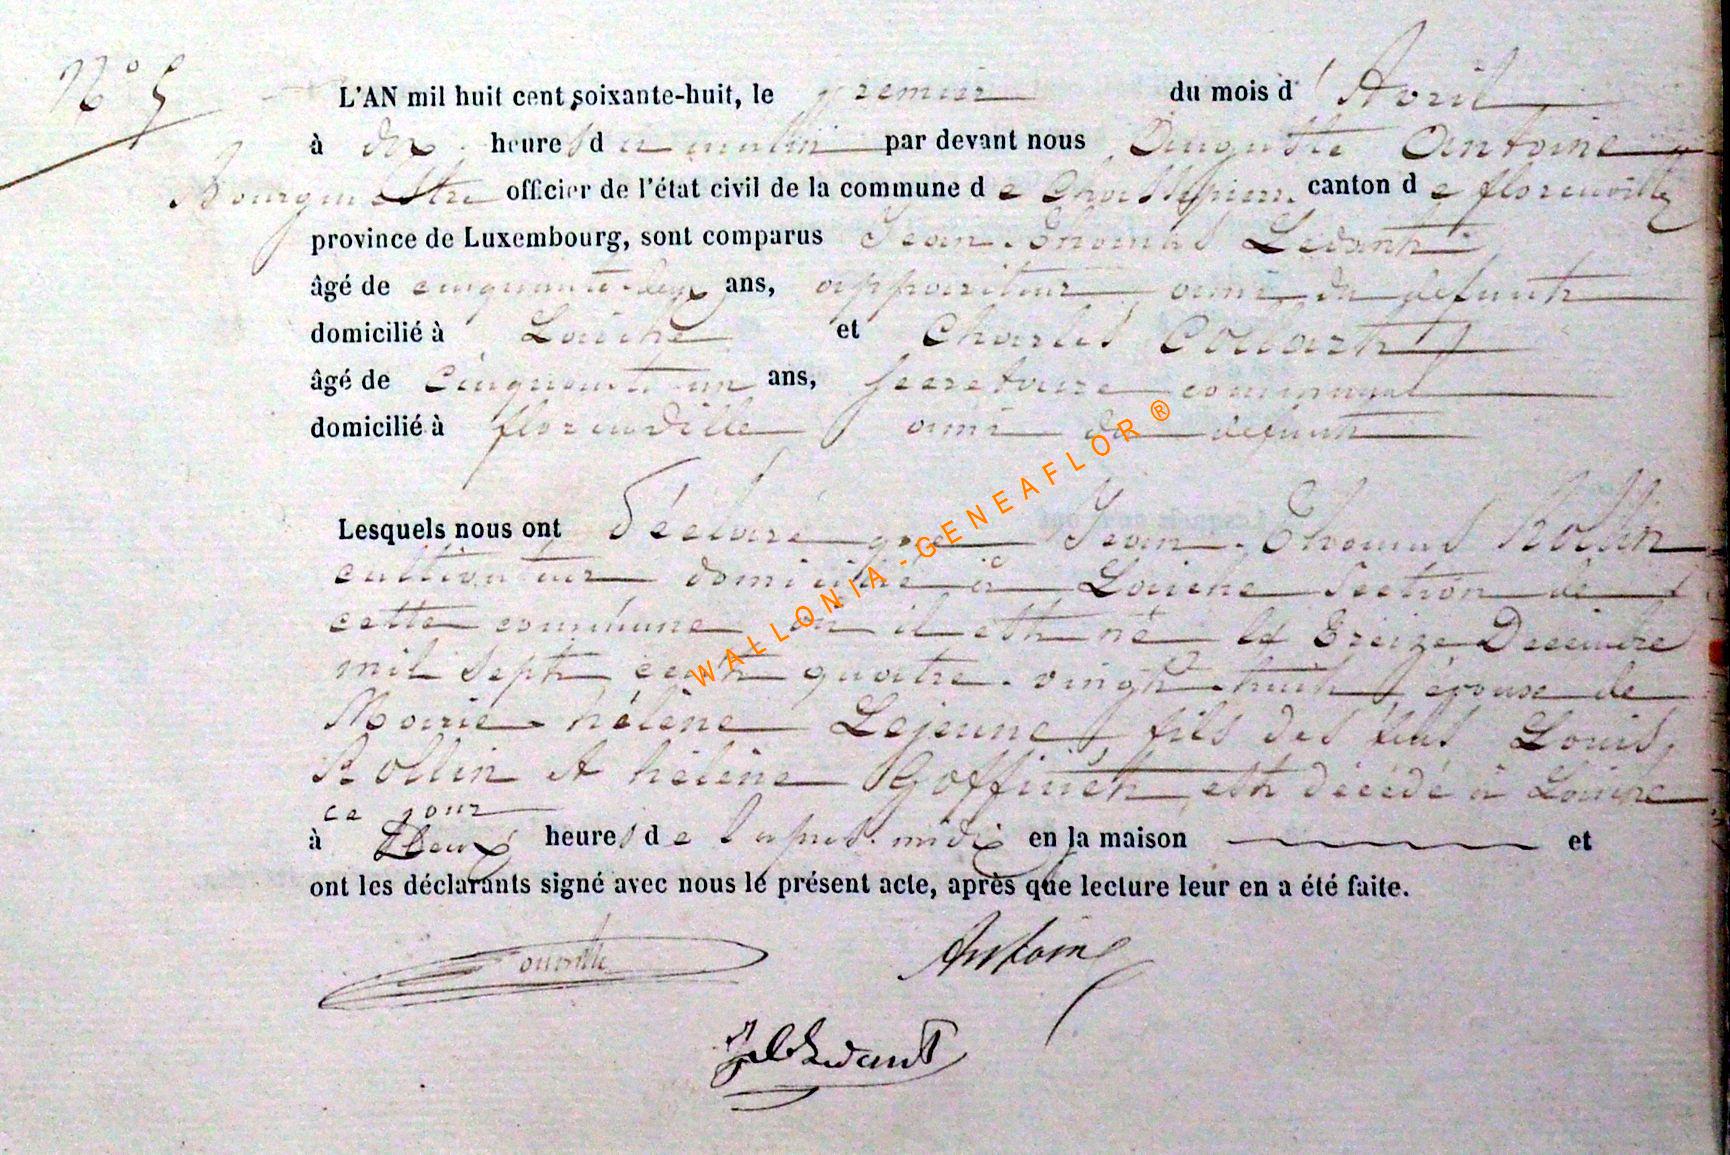 N° 5
L'AN mil huit cent soixante-huit, le premier du mois d'Avril
à dix heures du matin par devant nous Auguste Antoine
Bourgmestre officier de l'état civil de la commune de Chassepierre canton de florenville
province de Luxembourg, sont comparus Jean-Thomas Ledant
âgé de cinquante-deux ans, appariteur ami du defunt
domicilié à Laiche et Charles
âgé de Cinquante un ans, secretaire communal
domicilié à florenville ami du defunt
Lesquels nous ont déclaré que Jean-Thomas Rollin
cultivateur domicilié à Laiche Section de
cette commune où il est né le treize Decembre
mil sept cent quatre-vingt-huit époux de
Marie-hélène Lejeune fils des feus Louis
Rollin et hélène Goffinet, est décédé à Laiche
ce jour
à Deux heures de l'après-midi en la maison et
ont les déclarants signé avec nous le présent acte, après que lecture leur en a été faite.
Antoine
Ledant
WALLONIA-GENEAFLOR®